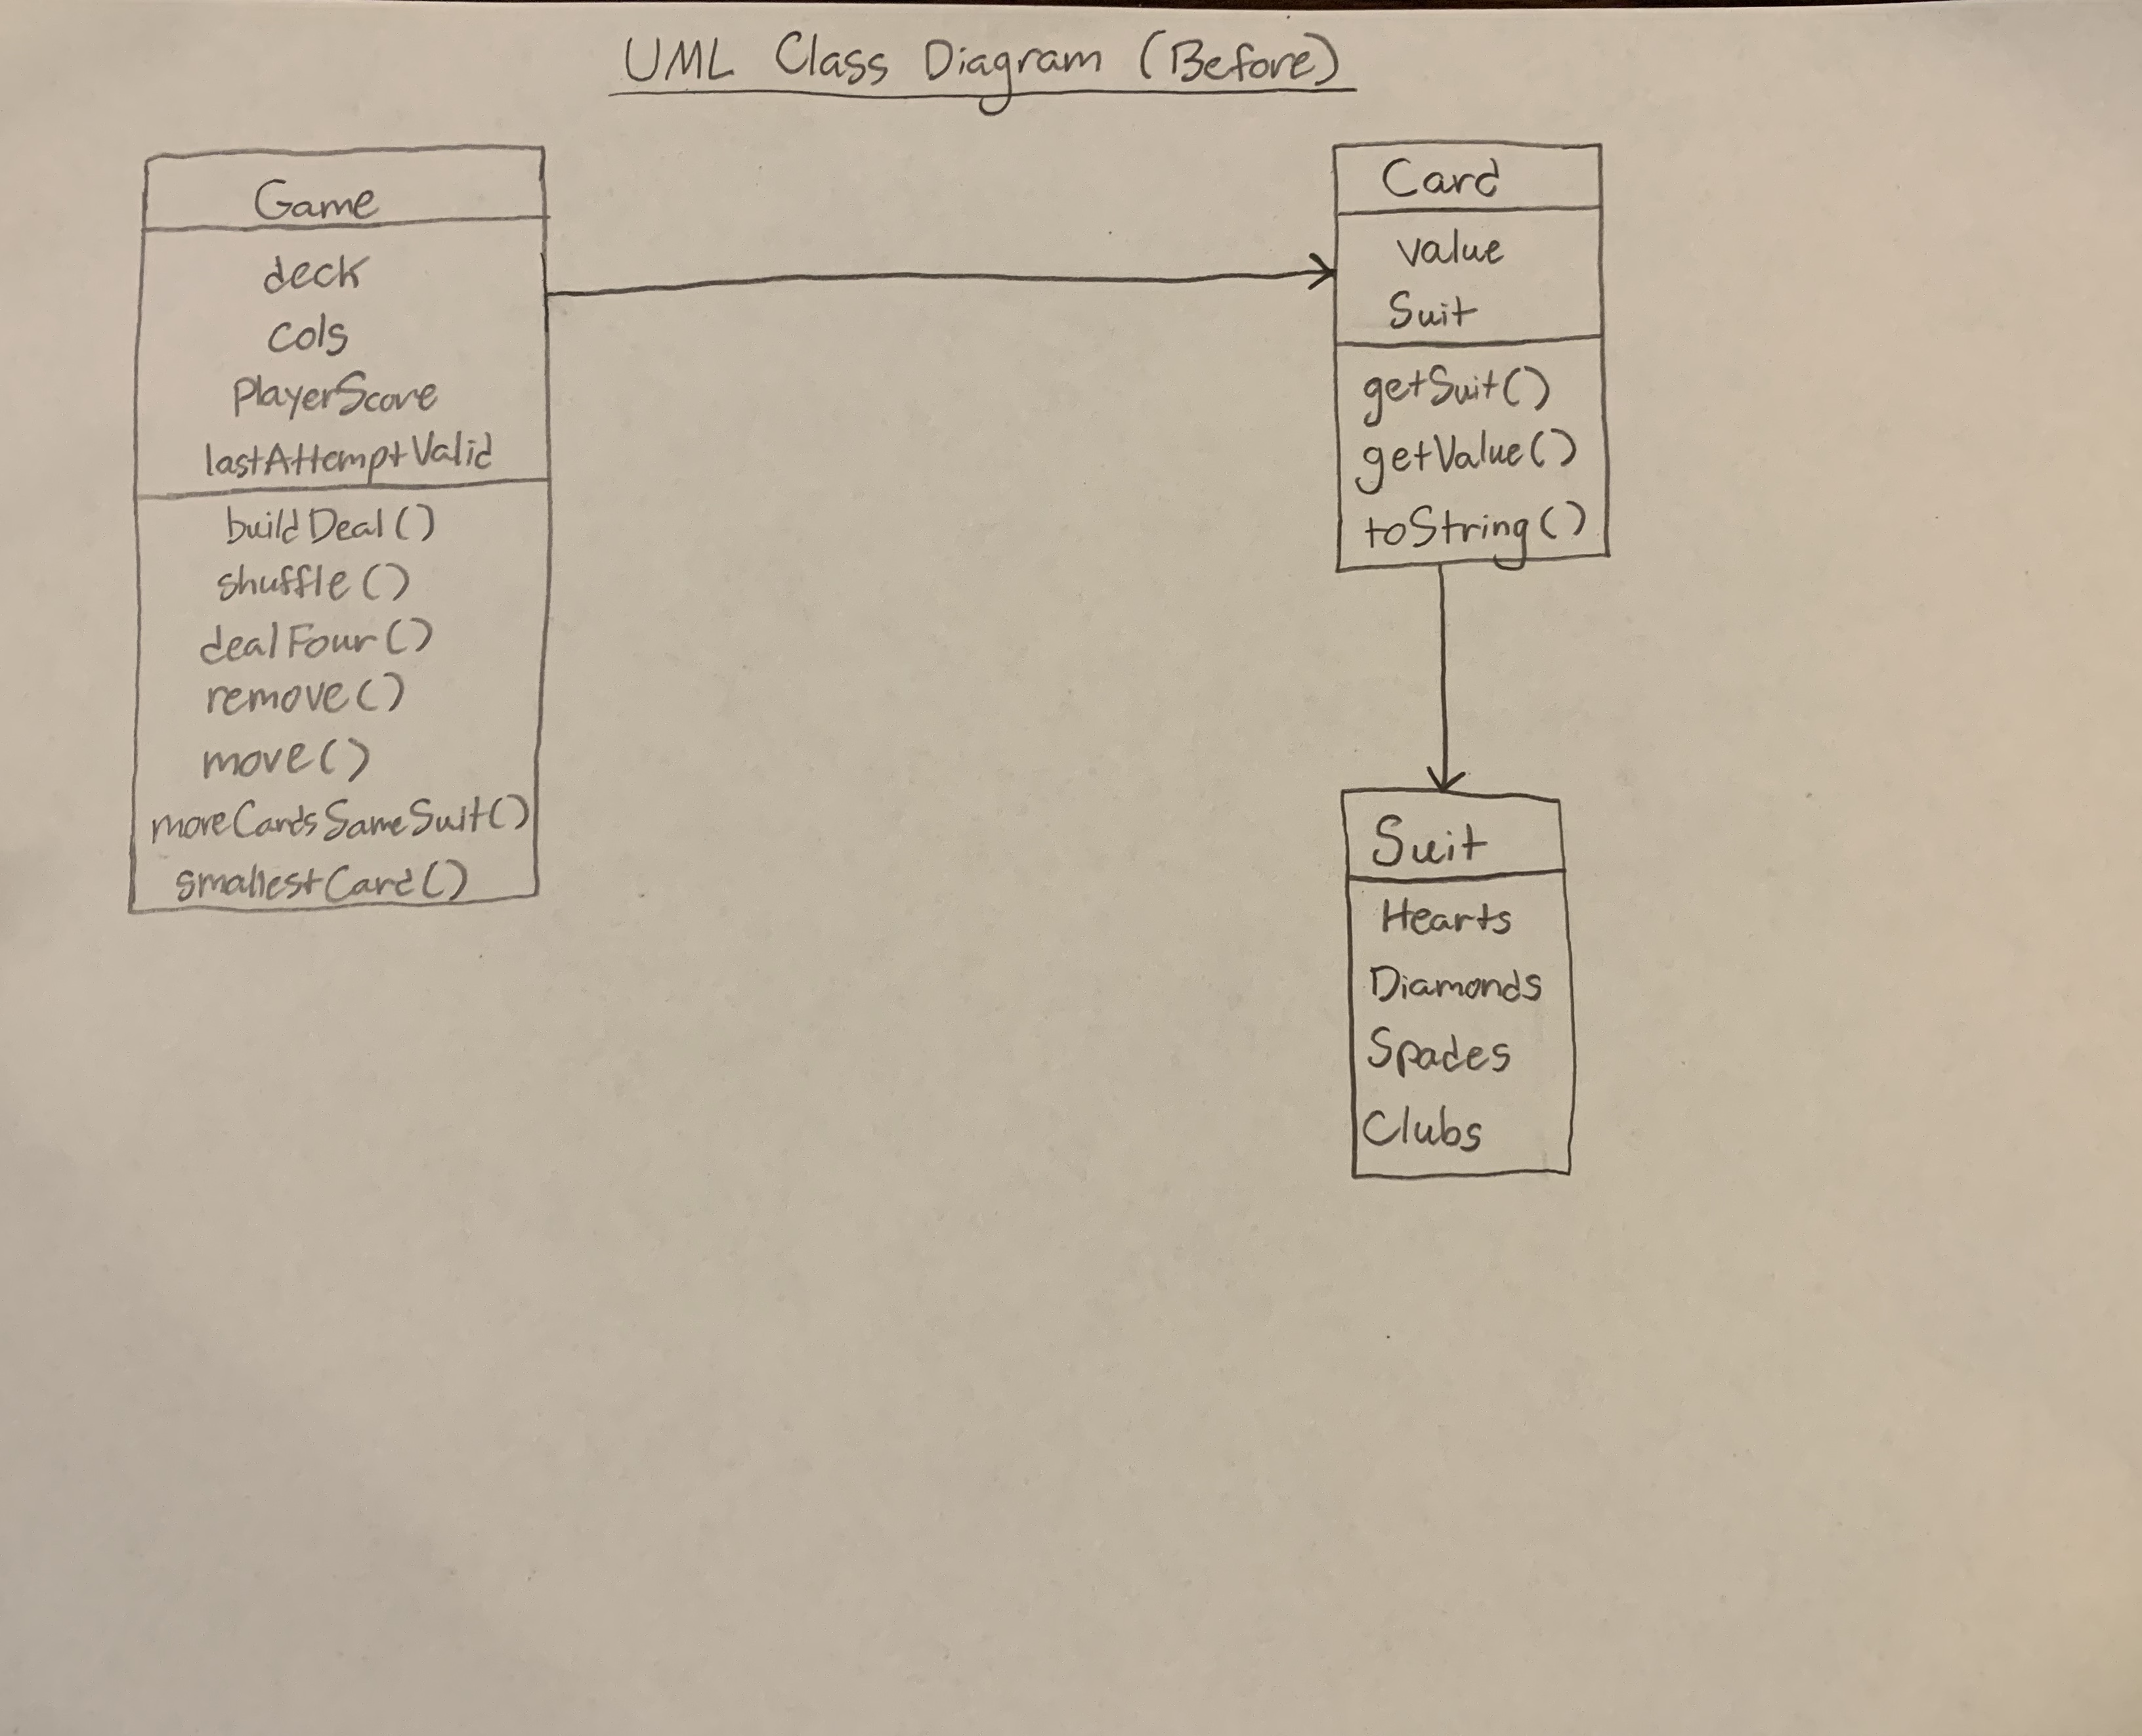 UML Class Diagram (Before)
Game
deck
cols
PlayerScore
lastAttemptValid
buildDeal()
shuffle()
dealFour()
remove()
move()
moreCardsSameSuit()
smallestCard()
Card
value
Suit
getSuit()
getValue()
toString()
Suit
Hearts
Diamonds
Spades
Clubs